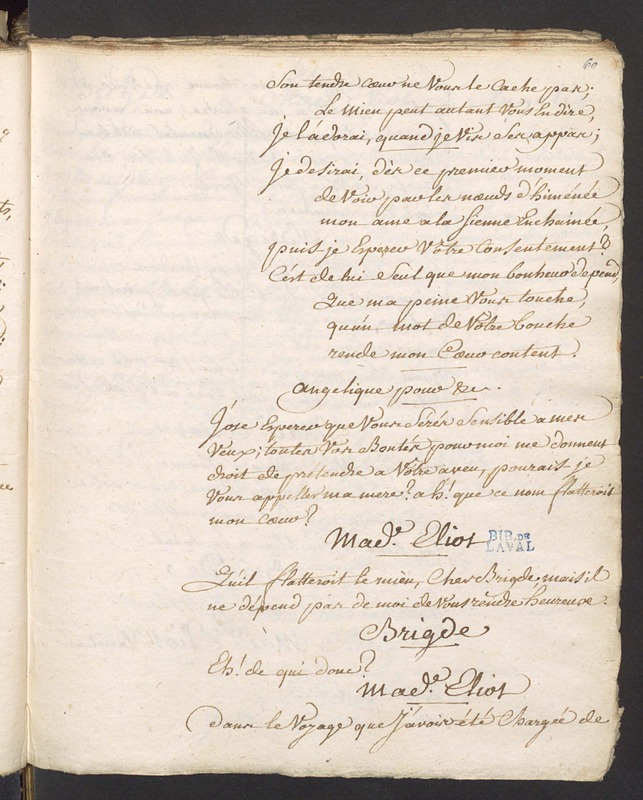 60
Son tendre coeur ne Vous le Cache pas;
Le Mien peut autant Vous En dire,
Je l'adorai, quand je Vis ses appas;
Je desirai, dès ce premier moment
de Voir par les nœuds d'himénée
mon ame a la sienne Enchainée,
puis je Esperer Vôtre Consentement?
C'est de lui seul que mon bonheur depend,
Que ma peine Vous touche,
qu'un mot de Vôtre bouche
rende mon Cœur content.
Angelique pour &c.
J'ose Esperer que Vous Serés Sensible a mes
Vœux; toutes Vos Bontés pour moi me donnent
droit de prétendre a Vôtre aveu, pourais je
Vous appeller ma mere? ah! que ce nom flatteroit
mon cœur?
Mad.e Eliot
BIB. DE
LAVAL
Qu'il flatteroit le mien, Cher Brigde, mais il
ne dépend pas de moi de Vous rendre heureux.
Brigde
Eh! de qui donc?
Mad.e Eliot
Dans le Voyage que J'avois été Chargée de